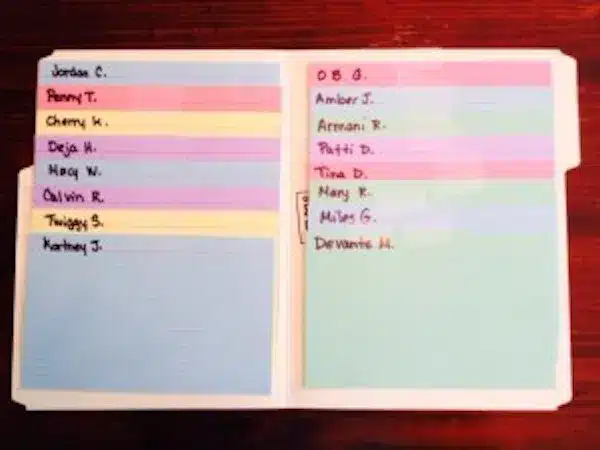 Jordan C.
Penny T.
Cherry K.
Deja H.
Macy W.
Calvin R.
Twiggy S.
Kortney J.
O B. J.
Amber J.
Armani R.
Patti D.
Tina D.
Mary K.
Miles G.
Devante M.